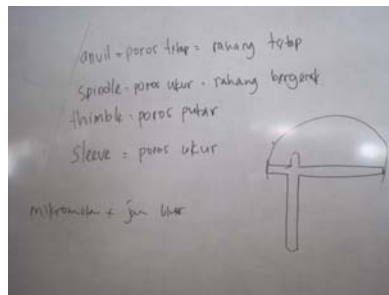 anvil = poros tetap = rahang tetap
spindle = poros ukur = rahang bergerak
thimble = poros putar
Sleeve = poros ukur